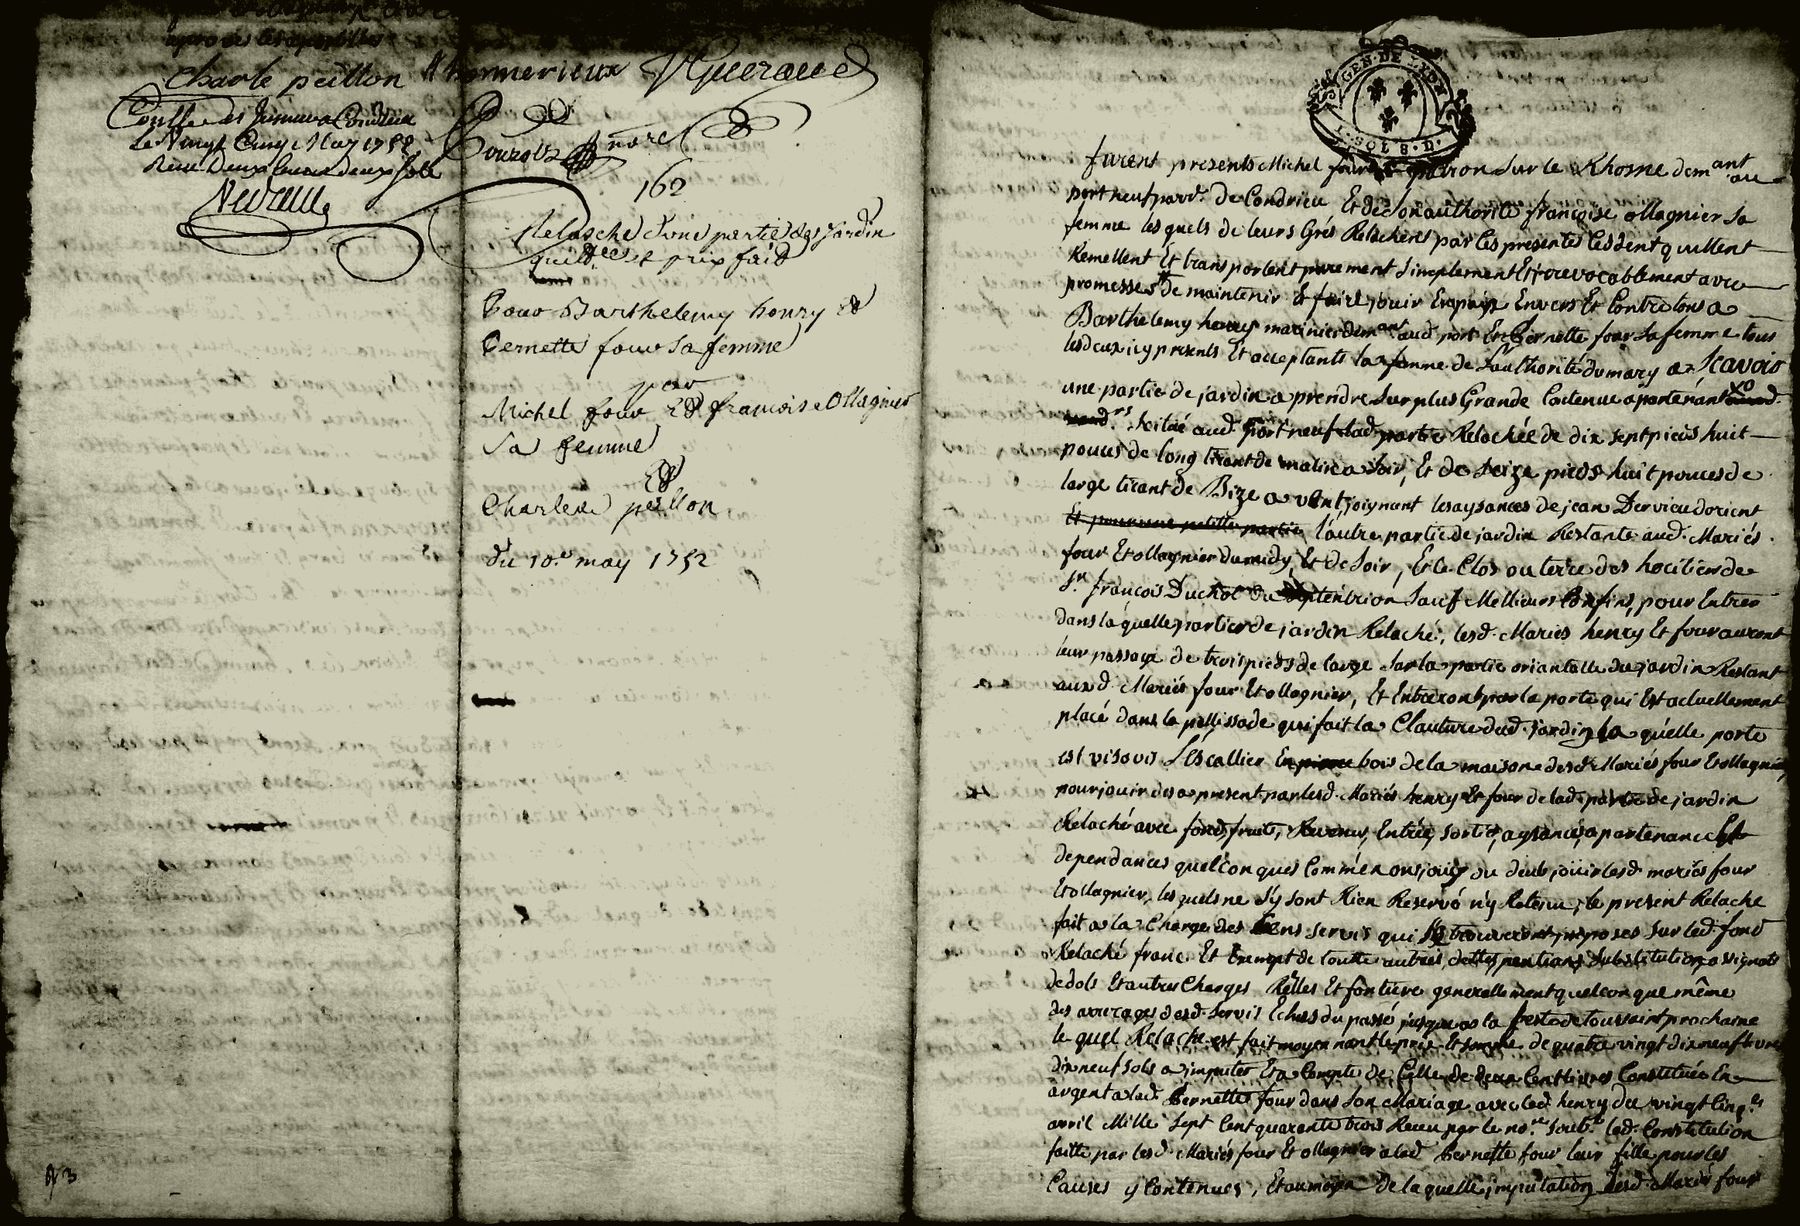 apres les apostilles
Charle peillon Thonnerieux VGueraud
Conllé et
le Vingt Cinq May 1752
Receu Deux livres deux sols
Nevaux
Pourolz nore
162
Relasché d'une partie des Jardin
quittces et prix faid
Pour Barthelemy henry et
Pernette four Sa femme
par
Michel four Et francoise Ollagnier
Sa femme
Et
Charlene peillon
du 10.e may 1752
N 3
GEN. DE LYON
1. SOL 8. D.
furent presents Michel four patron Sur le Rhosne demant au
port neuf parr. de Condrieu Et de Son authorité françoise ollagnier Sa
femme lesquels de leurs Grés Relachent par les presentes Cedent quittent
Remettent Et transportent purement Simplement Et irrevocablement avec
promesses de maintenir Et faire jouir En paix Envers Et Contre tous a
Barthelemy henry marinier demant aud. port Et Pernette four Sa femme tous
les deux icy presents Et acceptants la femme de L'authorité du mary a Scavoir
une partie de jardin a prendre Sur plus Grande Contenue apartenant xo aud.
rs Scitué aud. port neuf lad. partie Relachée de dix sept pieds huit
pouces de long tirant de matin a Soir, Et de Seize pieds huit pouces de
large tirant de Bize a vent joignant les aysances de jean Dervieu dorient
Et pour une petitte partie l'autre partie de jardin Restante aud. Mariés
four Et ollagnier du midy, Et de Soir, Et le Clos ou terre des hoeritiers de
Sr. françois Duchol du Septentrion Sauf Meilleurs Confins, pour Entrer
dans laquelle partie de jardin Relaché, lesd. Mariés henry Et four auront
leur passage de trois pieds de large Sur la partie orientalle du jardin Restant
auxd. Mariés four Et ollagnier, Et Entreront par la porte qui Est actuellement
placé dans la pallissade qui fait la Clauture dud. jardin la quelle porte
est visavis L'Escallier En pierre bois de la maison desd. Mariés four Et ollagnier
pour jouir des a present par lesd. Mariés henry Et four de lad. partie de jardin
Relaché avec fonds fruits, Revenus, Entrée, sortie, aysances, apartenances Et
dependances quelconques Comme en ont jouÿ ou deub joüir lesd. mariés four
Et ollagnier, lesquels ne S'y sont Rien Reservé n'y Retenu, le present Relache
fait a la Charge des Cens Servis qui Se trouveront imposés Sur led. fond
Relaché franc Et Exempt de toutte autres dettes pentions Substitutions assignats
de dols Et autres Charges Réelles Et fontiere generallement quelconque même
des arrerages desd. Servis Echus du passé jusques a la feste de toussaint prochaine
le quel Relache est fait moyennant le prix Et Somme de quatre vingt dix neuf livres
dix neuf Sols a imputer Et a Compte de Celle de deux Cent livres Constituée En
argent a lad. Pernette four dans Son Mariage avec led. henry du vingt Cinq.e
avril Mille Sept Cent quarante trois Receu par le no.re Soub.é lad. Constitution
faitte par lesd. Mariés four Et ollagnier a lad. Pernette four leur fille pour les
Causes y Contenues, Et au moyen de laquelle imputation lesd. Mariés four